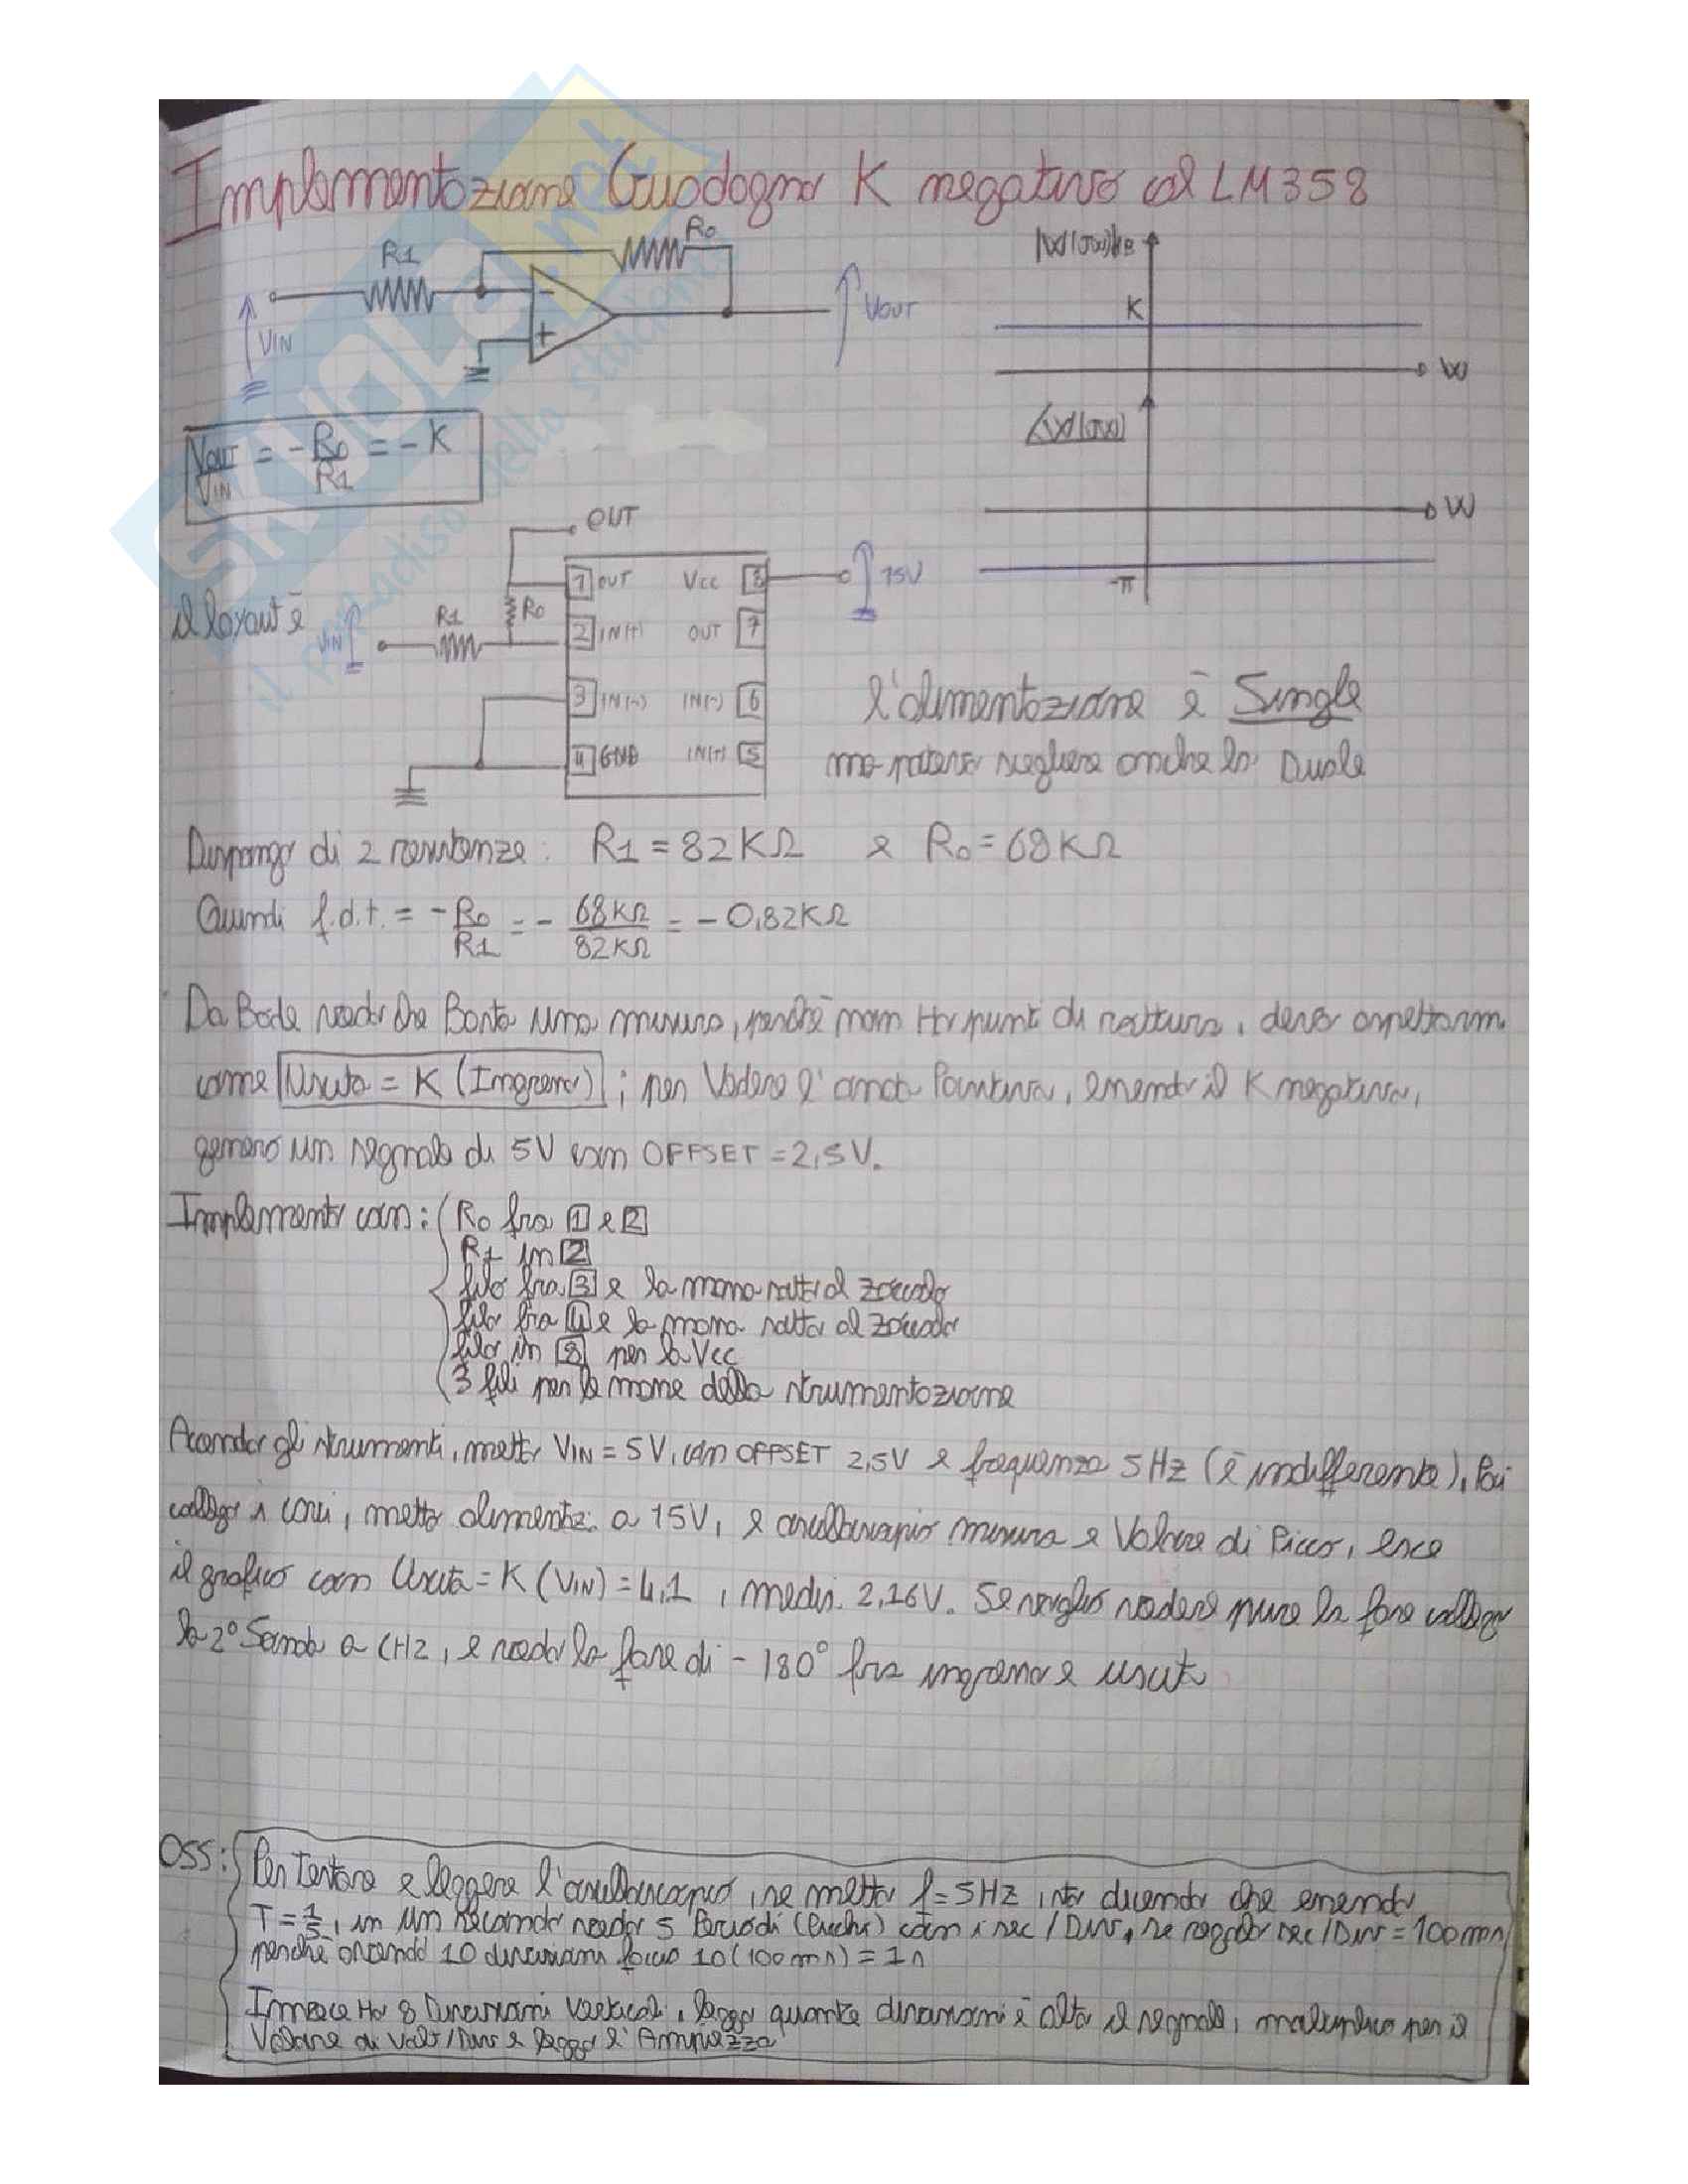 Implementazione Guadagno K negativo col LM358
R1
R0
VIN
VOUT
|W(jw)|dB
K
W
VOUT/VIN = -R0/R1 = -K
∠W(jw)
W
-π
il layout è
OUT
VIN
R1
R0
1 OUT VCC 8
15V
2 IN(+) OUT 7
3 IN(-) IN(-) 6
4 GND IN(+) 5
l'alimentazione è Single
ma potevo scegliere anche la Duale
Dispongo di 2 resistenze: R1 = 82KΩ e R0 = 68KΩ
Quindi f.d.t. = -R0/R1 = - 68KΩ/82KΩ = - 0,82KΩ
Da Bode vedo che Basta una misura, perchè non Ho punti di rottura, devo aspettarmi
come Uscita = K (Ingresso) ; per Vedere l'onda Positiva, essendo il K negativo,
genero un segnale di 5V con OFFSET = 2,5V.
Implemento con: R0 fra 1 e 2
R1 in 2
filo fra 3 e la massa sotto al zoccolo
filo fra 4 e la massa sotto al zoccolo
filo in 8 per la Vcc
3 fili per le masse della strumentazione
Accendo gli strumenti, metto VIN = 5V, con OFFSET 2,5V e frequenza 5Hz (è indifferente), Poi
collego i cavi, metto alimentaz. a 15V, e oscilloscopio misura e Valore di Picco, esce
il grafico con Uscita = K (VIN) = 4,1 , media 2,16V. Se voglio vedere pure la fase collego
la 2° Sonda a CH2, e vedo la fase di - 180° fra ingresso e uscita
OSS: Per Testare e leggere l'oscilloscopio, se metto f = 5HZ, sto dicendo che essendo
T = 1/5, in un secondo vedo 5 Periodi (Cicli) con i sec/DIV, se regolo sec/DIV = 100ms
perchè avendo 10 divisioni faccio 10(100ms) = 1s
Invece Ho 8 Divisioni Verticali, leggo quante divisioni è alto il segnale, moltiplico per il
Valore di Volt/Div e leggo l'Ampiezza
SKUOLA.net
il paradiso dello studente